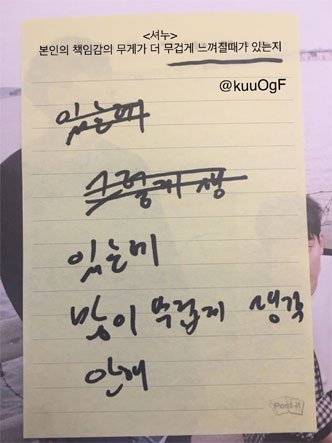 <셔누>
본인의 책임감의 무게가 더 무겁게 느껴질때가 있는지
@kuuOgF
있는데
그렇게 생
있는데
많이 무겁게 생각
안해
Post-it